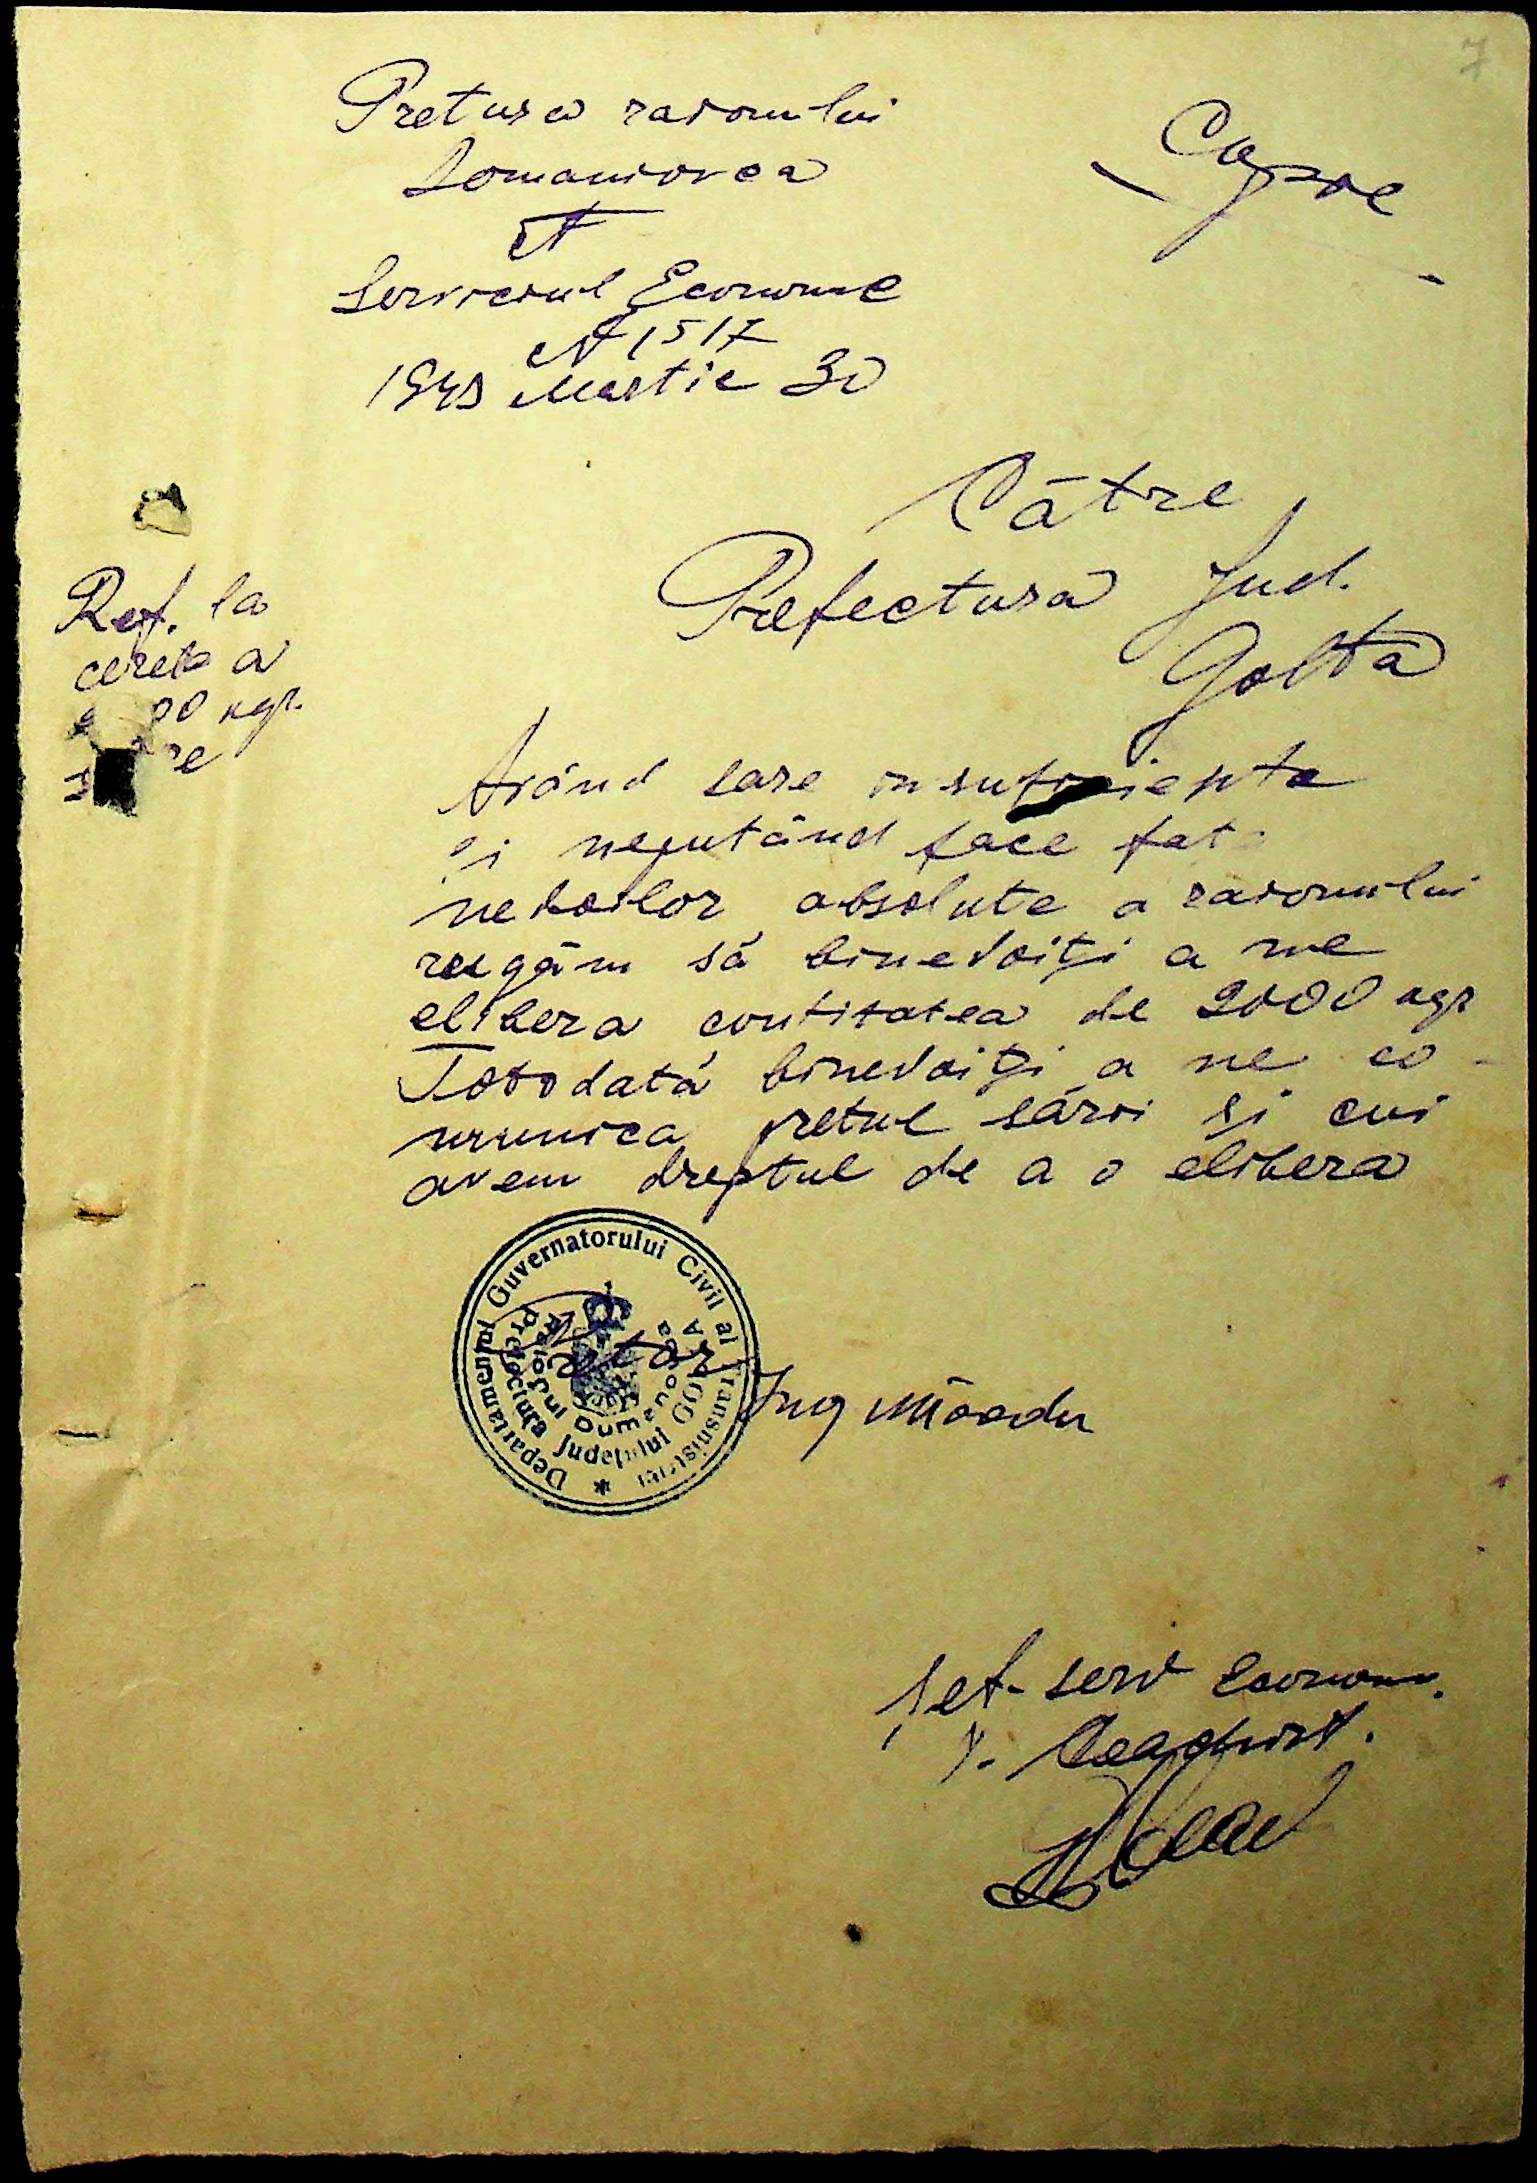 7
Pretura raionului
Domaniovca
Copie
Serviciul Economic
N 1517
1943 Martie 30
Către
Prefectura Jud.
Golta
Ref. la
cerere a
00 kgr.
Având sare insuficienta
și neputând face fata
nevoilor absolute a raionului
rugăm să binevoiți a ne
elibera cantitatea de 2000 kgr
Totodată binevoiți a ne co-
munica prețul sării și cui
avem dreptul de a o elibera
Departamentul Guvernatorului Civil al Transnistriei
Prefectura Județului GOLTA
Pretor
Ing
Șef-serv Econom.